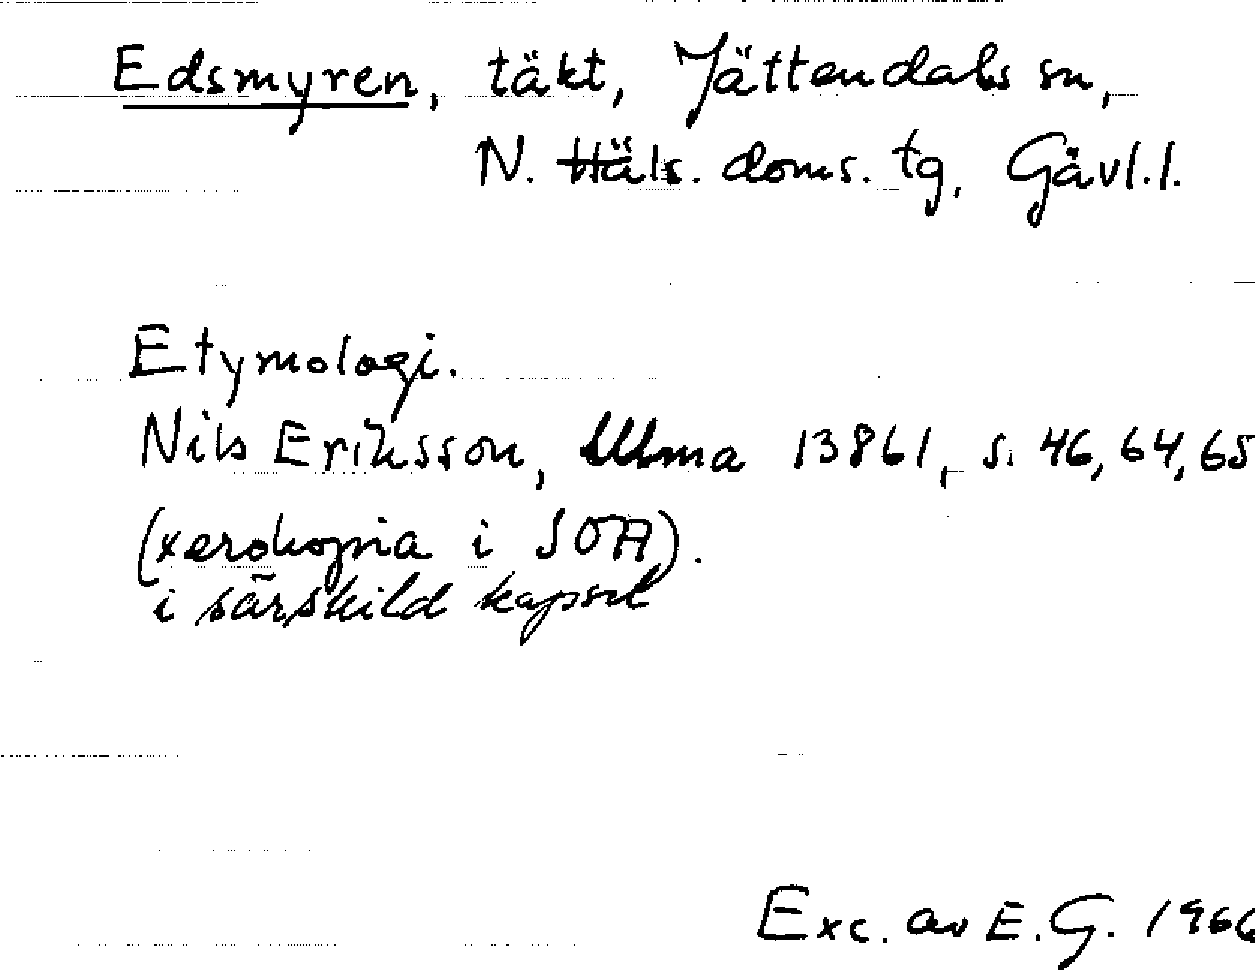 Edsmyren, täkt, Jättendals sn,
N. Häls. doms. tg, Gävl.l.
Etymologi.
Nils Eriksson, Ulma 13861, s. 46, 64, 65
(xerokopia i SOA).
i särskild kapsel
Exc. av E.G. 1966